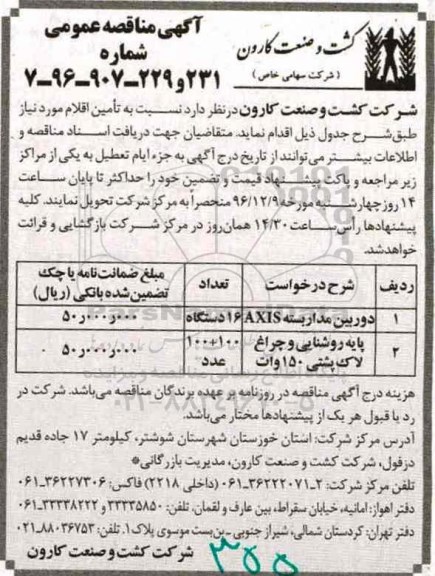 آگهی مناقصه عمومی
شماره
۲۳۱ و ۲۲۹ـ۹۰۷ـ۹۶ـ۷
کشت و صنعت کارون
( شرکت سهامی خاص )
شرکت کشت و صنعت کارون در نظر دارد نسبت به تأمین اقلام مورد نیاز
طبق شرح جدول ذیل اقدام نماید. متقاضیان جهت دریافت اسناد مناقصه و
اطلاعات بیشتر می‌توانند از تاریخ درج آگهی به جزء ایام تعطیل به یکی از مراکز
زیر مراجعه و پاکت پیشنهاد قیمت و تضمین خود را حداکثر تا پایان ساعت
۱۴ روز چهارشنبه مورخه ۹۶/۱۲/۹ منحصراً به مرکز شرکت تحویل نمایند. کلیه
پیشنهادها رأس ساعت ۱۴/۳۰ همان‌روز در مرکز شرکت بازگشایی و قرائت
خواهد شد.
ردیف شرح درخواست تعداد مبلغ ضمانت‌نامه یا چک تضمین شده بانکی (ریال)
۱ دوربین مداربسته AXIS ۱۶ دستگاه ۵۰٫۰۰۰٫۰۰۰
۲ پایه روشنایی و چراغ لاک پشتی ۱۵۰ وات ۱۰۰+۱۰۰ عدد ۵۰٫۰۰۰٫۰۰۰
هزینه درج آگهی مناقصه در روزنامه بر عهده برندگان مناقصه می‌باشد. شرکت در
رد یا قبول هر یک از پیشنهادها مختار می‌باشد.
آدرس مرکز شرکت: استان خوزستان شهرستان شوشتر، کیلومتر ۱۷ جاده قدیم
دزفول، شرکت کشت و صنعت کارون، مدیریت بازرگانی*
تلفن مرکز شرکت: ۲ـ۳۶۲۲۲۰۷۱ـ۰۶۱ (داخلی ۲۲۱۸) فاکس: ۳۶۲۲۷۳۰۶ـ۰۶۱
دفتر اهواز: امانیه، خیابان سقراط، بین عارف و لقمان، تلفن: ۳۳۳۳۵۸۵۰ و ۳۳۳۳۸۲۲۲ـ۰۶۱
دفتر تهران: کردستان شمالی، شیراز جنوبی ـ بن‌بست موسوی پلاک ۱. تلفن: ۸۸۰۳۶۷۵۳ـ۰۲۱
شرکت کشت و صنعت کارون
۳۵۵